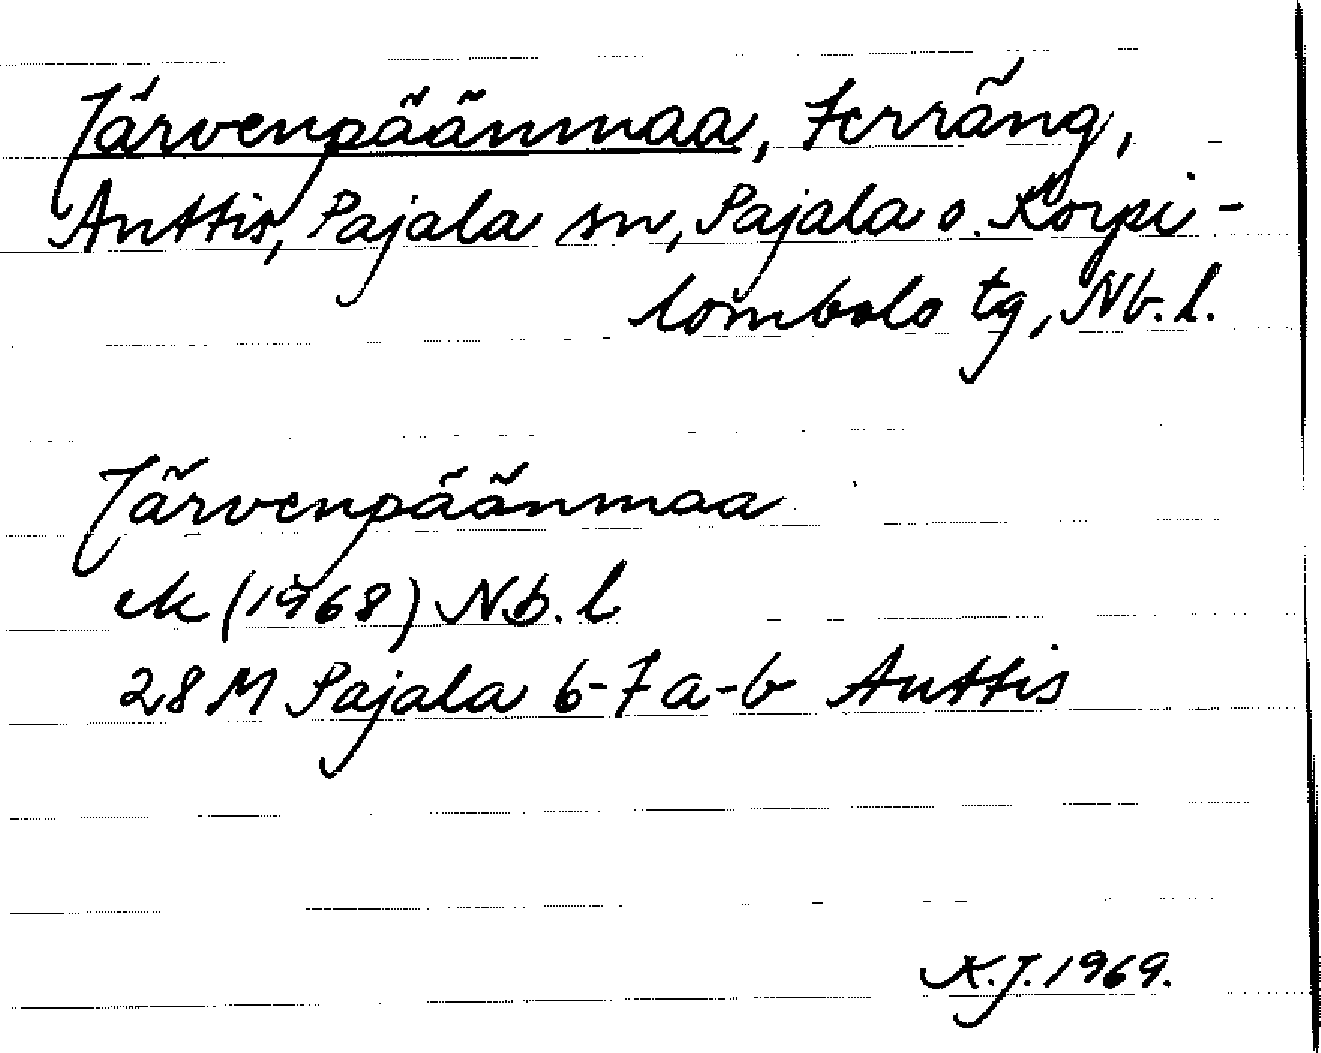 Järvenpäänmaa, Terräng,
Anttis, Pajala sn, Pajala o. Korpi-
lombolo tg, Nb. l.
Järvenpäänmaa
ek (1968) Nb. l
28 M Pajala 6-7 a-b Anttis
K.J. 1969.